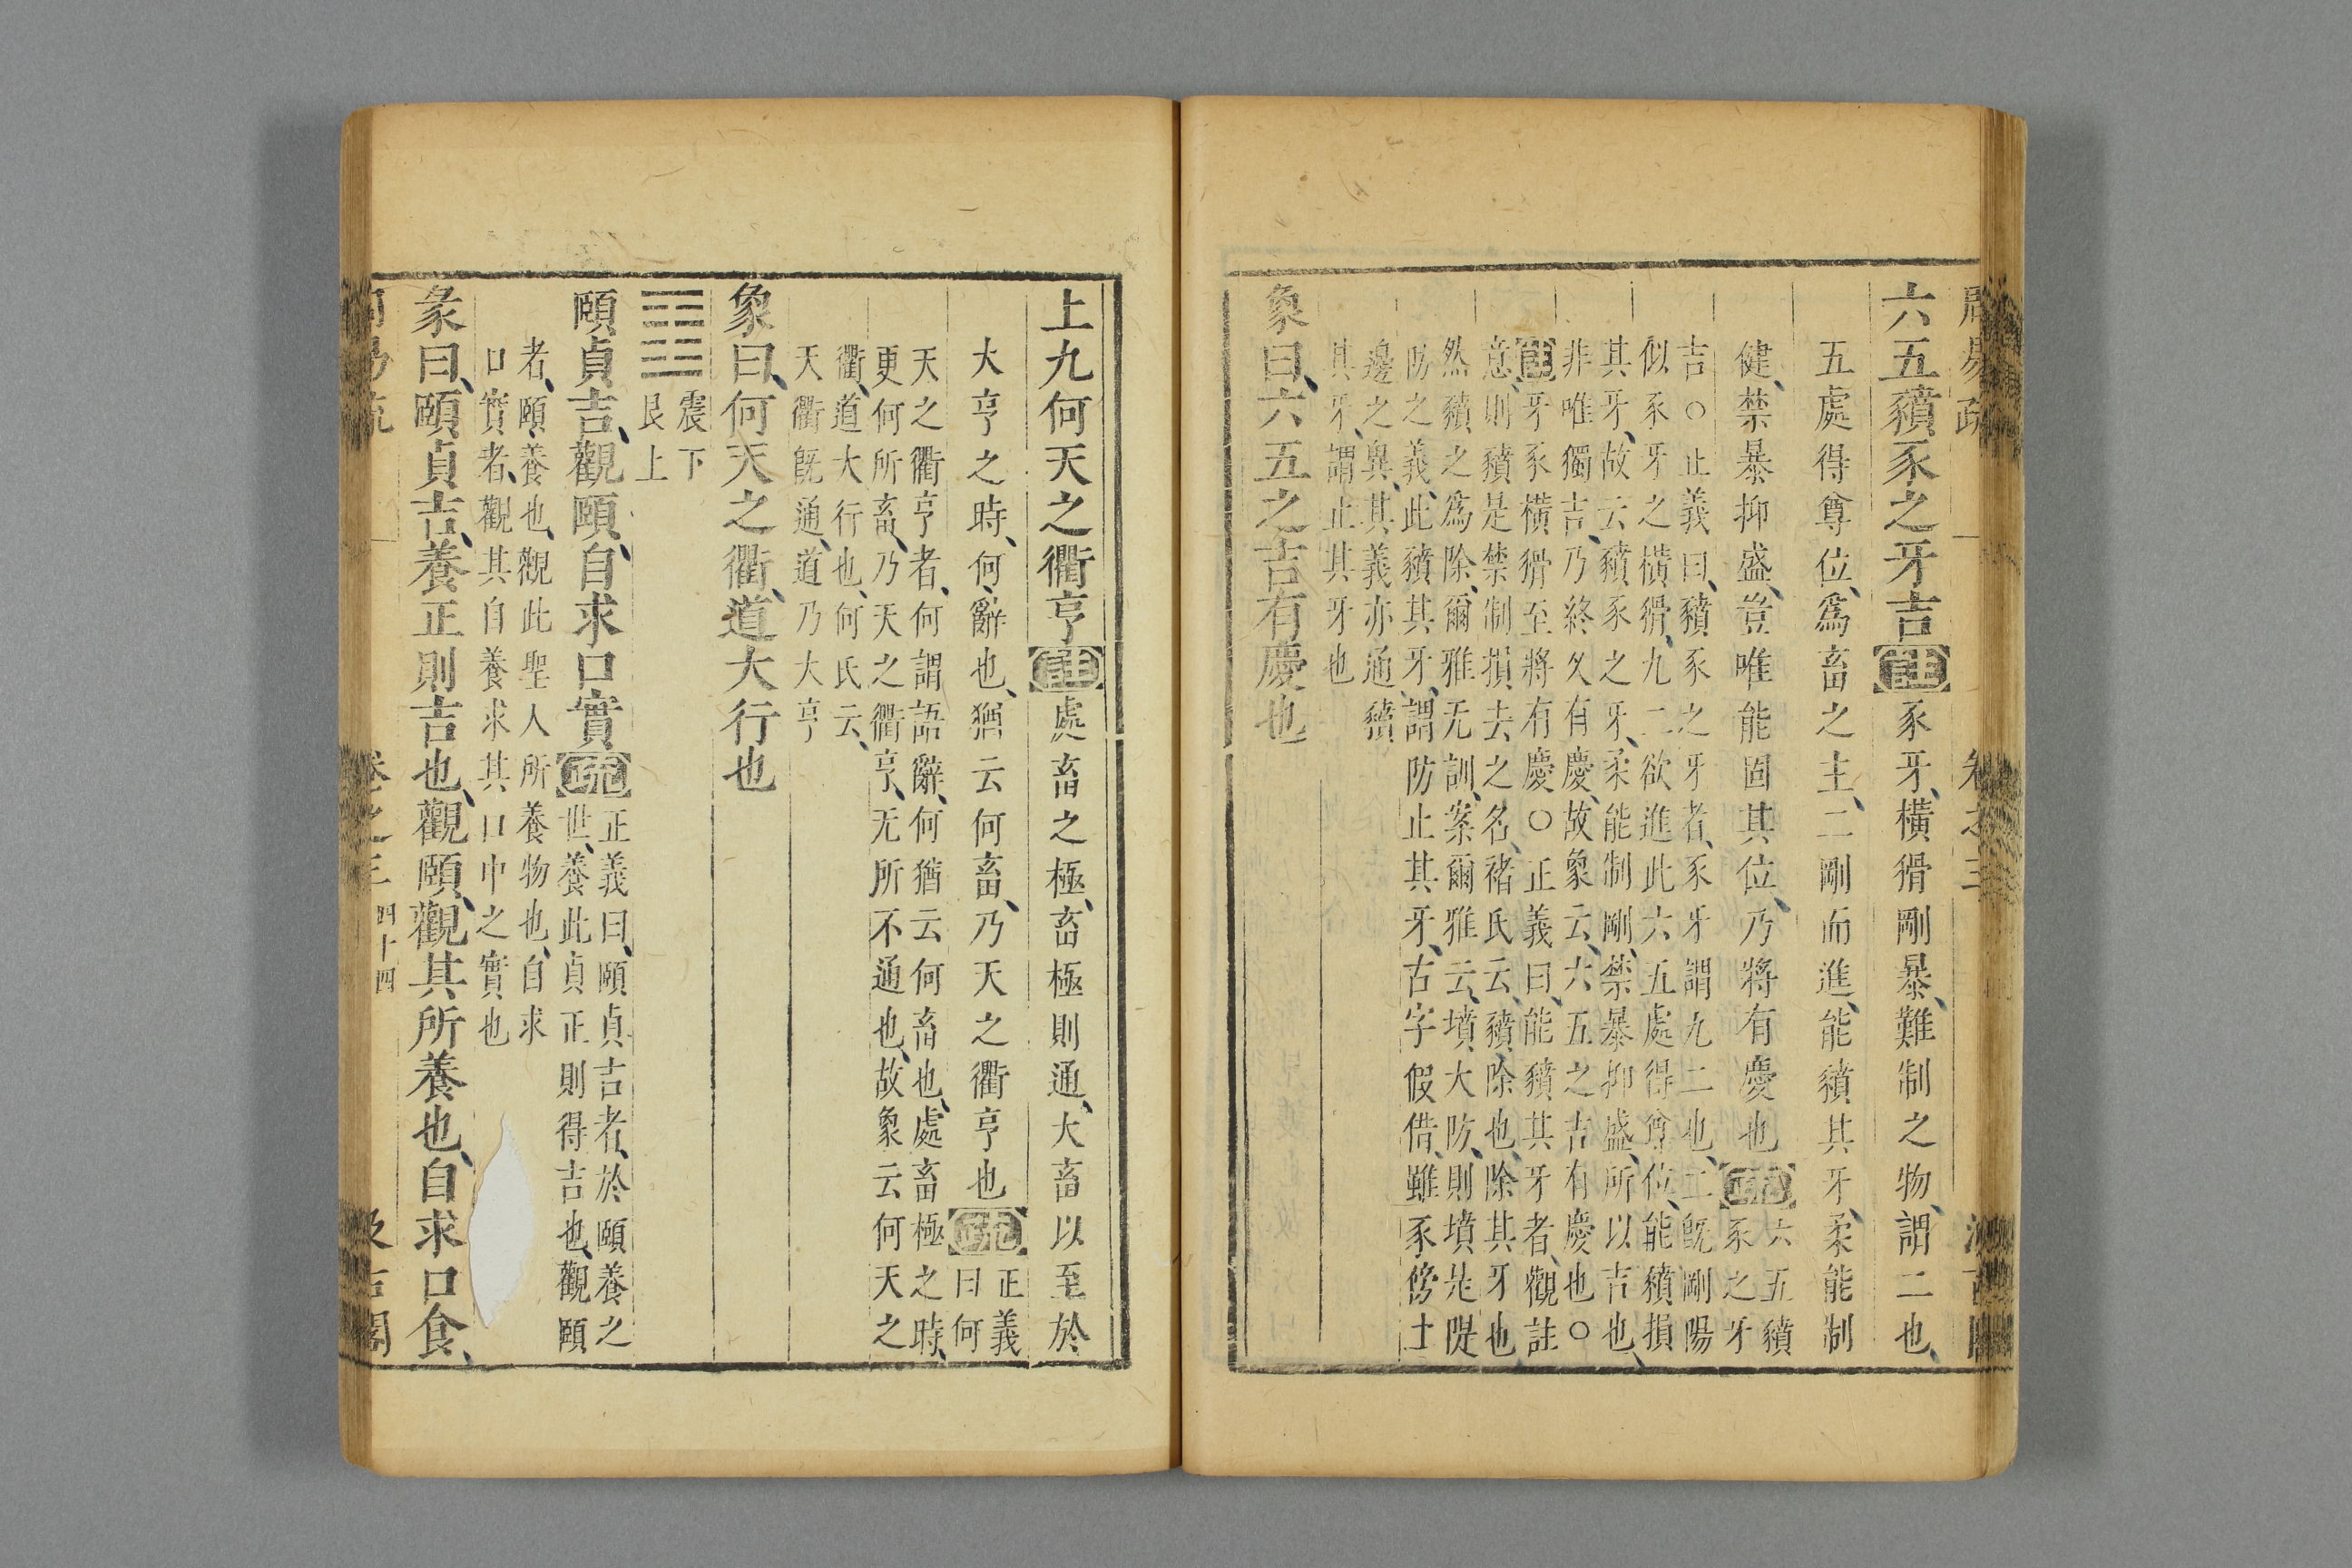 周易疏 卷之三 汲古閣
六五豶豕之牙吉註豕牙橫猾剛暴難制之物謂二也
五處得尊位爲畜之主二剛而進能豶其牙柔能制
健禁暴抑盛豈唯能固其位乃將有慶也疏六五豶
豕之牙
吉○正義曰豶豕之牙者豕牙謂九二也二旣剛陽
似豕牙之橫猾九二欲進此六五處得尊位能豶損
其牙故云豶豕之牙柔能制剛禁暴抑盛所以吉也
非唯獨吉乃終久有慶故象云六五之吉有慶也○
註牙豕橫猾至將有慶○正義曰能豶其牙者觀註
意則豶是禁制損去之名褚氏云豶除也除其牙也
然豶之爲除爾雅无訓案爾雅云墳大防則墳是隄
防之義此豶其牙謂防止其牙古字假借雖豕傍土
邊之異其義亦通豶
其牙謂止其牙也
象曰六五之吉有慶也
上九何天之衢亨註處畜之極畜極則通大畜以至於
大亨之時何辭也猶云何畜乃天之衢亨也疏正義
曰何
天之衢亨者何謂語辭何猶云何畜也處畜極之時
更何所畜乃天之衢亨无所不通也故象云何天之
衢道大行也何氏云
天衢旣通道乃大亨
象曰何天之衢道大行也
震下
艮上
頤貞吉觀頤自求口實疏正義曰頤貞吉者於頤養之
世養此貞正則得吉也觀頤
者頤養也觀此聖人所養物也自求
口實者觀其自養求其口中之實也
彖曰頤貞吉養正則吉也觀頤觀其所養也自求口食
周易疏 卷之三 四十四 汲古閣